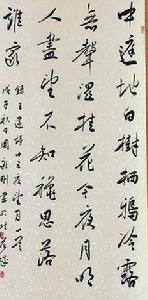 中庭地白樹栖鴉冷露
無聲濕桂花今夜月明
人盡望不知秋思落
誰家
錄王建詩十五夜望月一首
戊子秋日